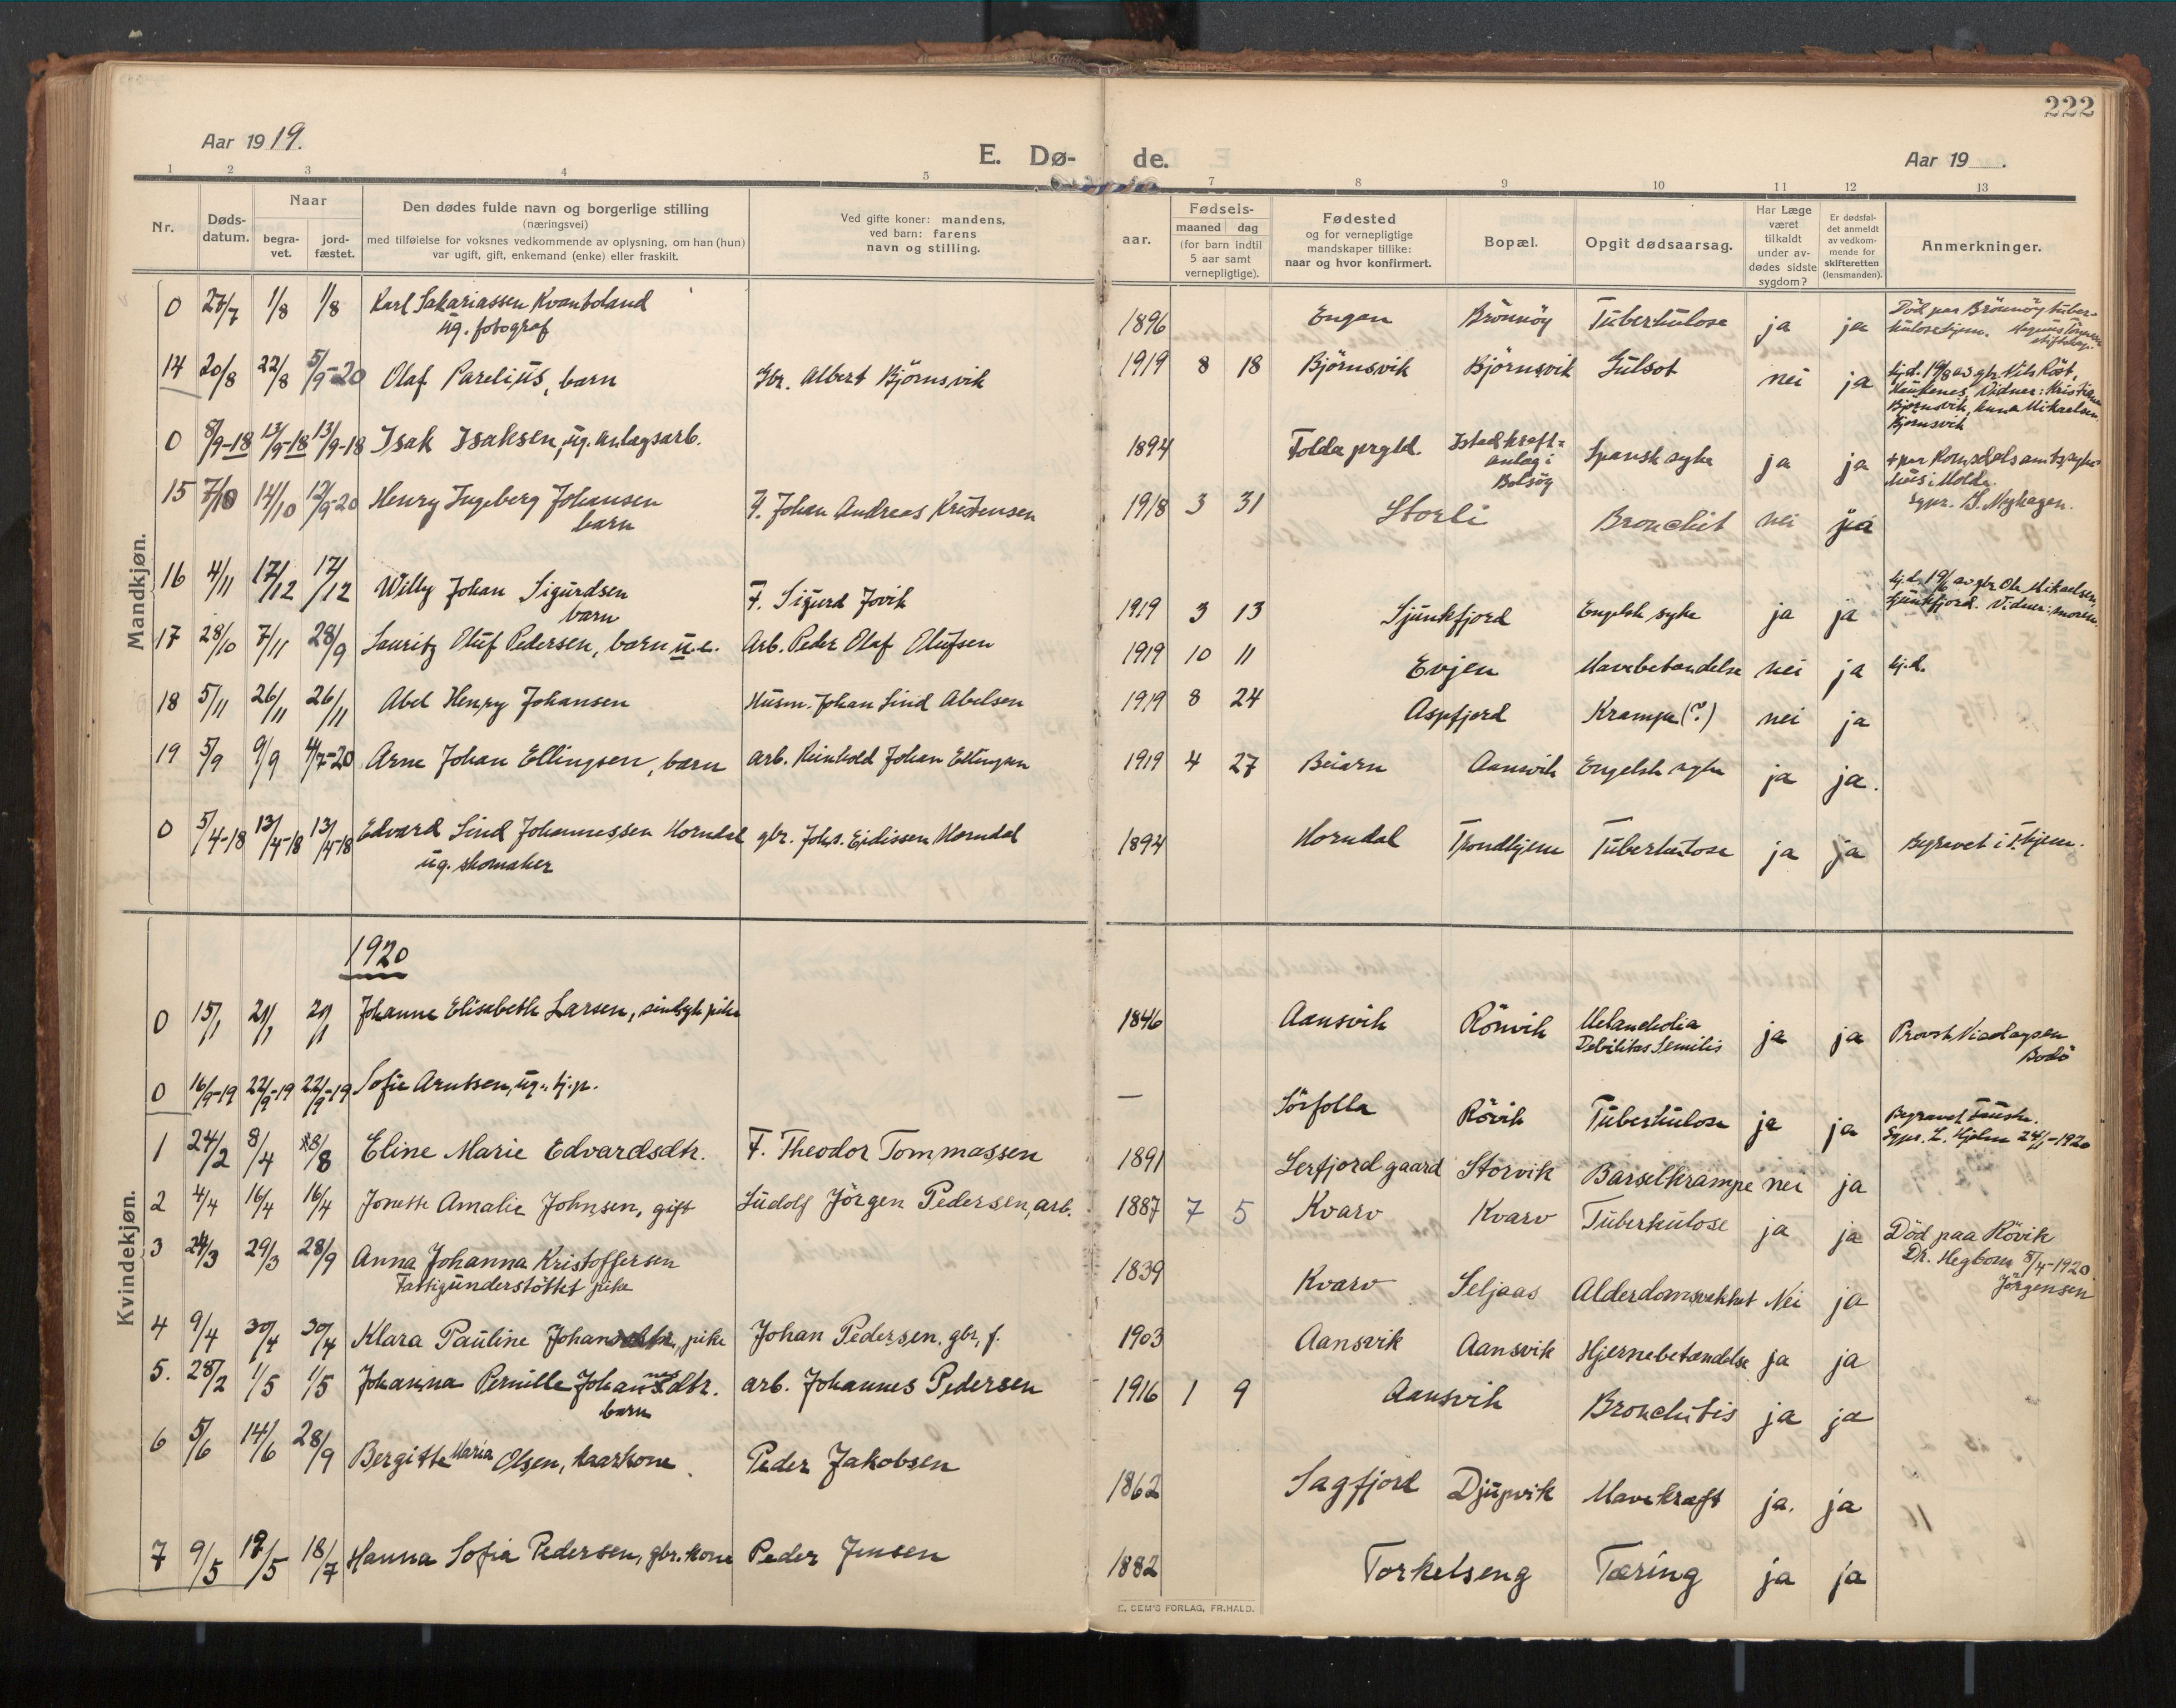 222
Aar 19 19.
E. Dø- de.
Aar 19 .
1 2 3 4 5 6 7 8 9 10 11 12 13
Nr.
Døds-
datum.
Naar
begra-
vet.
jord-
fæstet.
Den dødes fulde navn og borgerlige stilling
(næringsvei)
med tilføielse for voksnes vedkommende av oplysning, om han (hun)
var ugift, gift, enkemand (enke) eller fraskilt.
Ved gifte koner: mandens,
ved barn: farens
navn og stilling.
Fødsels-
aar.
maaned dag
(for barn indtil
5 aar samt
vernepligtige).
Fødested
og for vernepligtige
mandskaper tillike:
naar og hvor konfirmert.
Bopæl.
Opgit dødsaarsag.
Har Læge
været
tilkaldt
under av-
dødes sidste
sygdom?
Er dødsfal-
det anmeldt
av vedkom-
mende for
skifteretten
(lensmanden).
Anmerkninger.
Mandkjøn.
0 27/7 1/8 1/8 Karl Sakariassen Kvantoland 1896 Engan Brönnöy Tuberkulose ja ja Död paa Brönnöy tuber-
ug. fotograf kulosehjem.
14 20/8 22/8 5/9-20 Olaf Parelius, barn Gbr. Albert Björnsvik 1919 8 18 Bjørnsvik Bjørnsvik Gulsot nei ja hj.d. 19/8 av gbr. Nils Röst,
Vidner: Kristiane
Bjørnsvik, Anna Mikaelsen
Bjørnsvik
0 8/9-18 13/9-18 13/9-18 Isak Isaksen, ug. anlagsarb. 1894 Folda prgld. Istad kraft=
anlæg i
Bolsöy
Spansk syke ja ja + paa Romsdals amtssyke-
hus i Molde.
sgpr. S. Nyhagen.
15 7/10 14/10 12/9-20 Henry Ingeberg Johansen F. Johan Andreas Kristensen 1918 3 31 Storli Bronchit nei ja
barn
16 4/11 17/12 17/12 Willy Johan Sigurdsen F. Sigurd Jovik 1919 3 13 Sjunkfjord Engelsk syke ja ja hj.d. 19/6 av gbr. Ole Mikaelsen,
barn Sjunkfjord. Vidner: moren.
17 28/10 7/11 28/9 Lauritz Oluf Pedersen, barn u.e. Arb. Peder Olaf Olufsen 1919 10 11 Evjen Mavebetændelse nei ja hj.d.
18 5/11 26/11 26/11 Abel Henry Johansen Husm. Johan Lind Abelsen 1919 8 24 Aspfjord Krampe (?) nei ja
19 5/9 9/9 4/7-20 Arne Johan Ellingsen, barn arb. Reinhold Johan Ellingsen 1919 4 27 Beiarn Aansvik Engelsk syke ja ja.
0 5/4-18 13/4-18 13/4-18 Edvard Lind Johannessen Horndal gbr. Johs. Eidissen Horndal 1894 Horndal Trondhjem Tuberkulose ja ja Begravet i T.hjem.
ug. skomaker
1920
Kvindekjøn.
0 15/1 21/1 21/1 Johanne Elisabeth Larsen, sindsyk pike 1846 Aansvik Rönvik Melancholia ja ja Provst Nicolaysen
Debilitas Semilis Bodö
0 16/9-19 22/9-19 22/9-19 Sofie Arntsen, ug., tj.p. — Sörfolla Rövik Tuberkulose ja ja Begravet Fauske.
Sgpr. L. Hjelm 24/1-1920
1 24/2 8/4 8/8 Eline Marie Edvardsdtr. F. Theodor Tommassen 1891 Lerfjord gaard Storvik Barselkrampe nei ja
2 4/4 16/4 16/4 Jonette Amalie Johnsen, gift Ludolf Jörgen Pedersen, arb. 1887 7 5 Kvarv Kvarv Tuberkulose ja ja Död paa Rövik
Dr. Hegbom 8/4-1920
Jörgensen
3 24/3 29/3 28/9 Anna Johanna Kristoffersen 1839 Kvarv Seljaas Alderdomsvekhet Nei ja
Fattigunderstöttet pike
4 9/4 30/4 30/4 Klara Pauline pike Johan Pedersen. gbr. f. 1903 Aansvik Aansvik Hjernebetændelse ja ja
5. 28/2 1/5 1/5 Johanna Pernille Johannesdtr. arb. Johannes Pedersen 1916 1 9 Aansvik Bronchitis ja ja
barn
6 5/6 14/6 28/9 Bergitte Maria Olsen, kaarkone Peder Jakobsen 1862 Sagfjord Djupvik Mavekræft ja. ja
7 9/5 19/5 18/7 Hanna Sofia Pedersen, gbr. kone Peder Jensen 1882 Torkelseng Tæring ja ja
E. SEM'S FORLAG, FR.HALD.